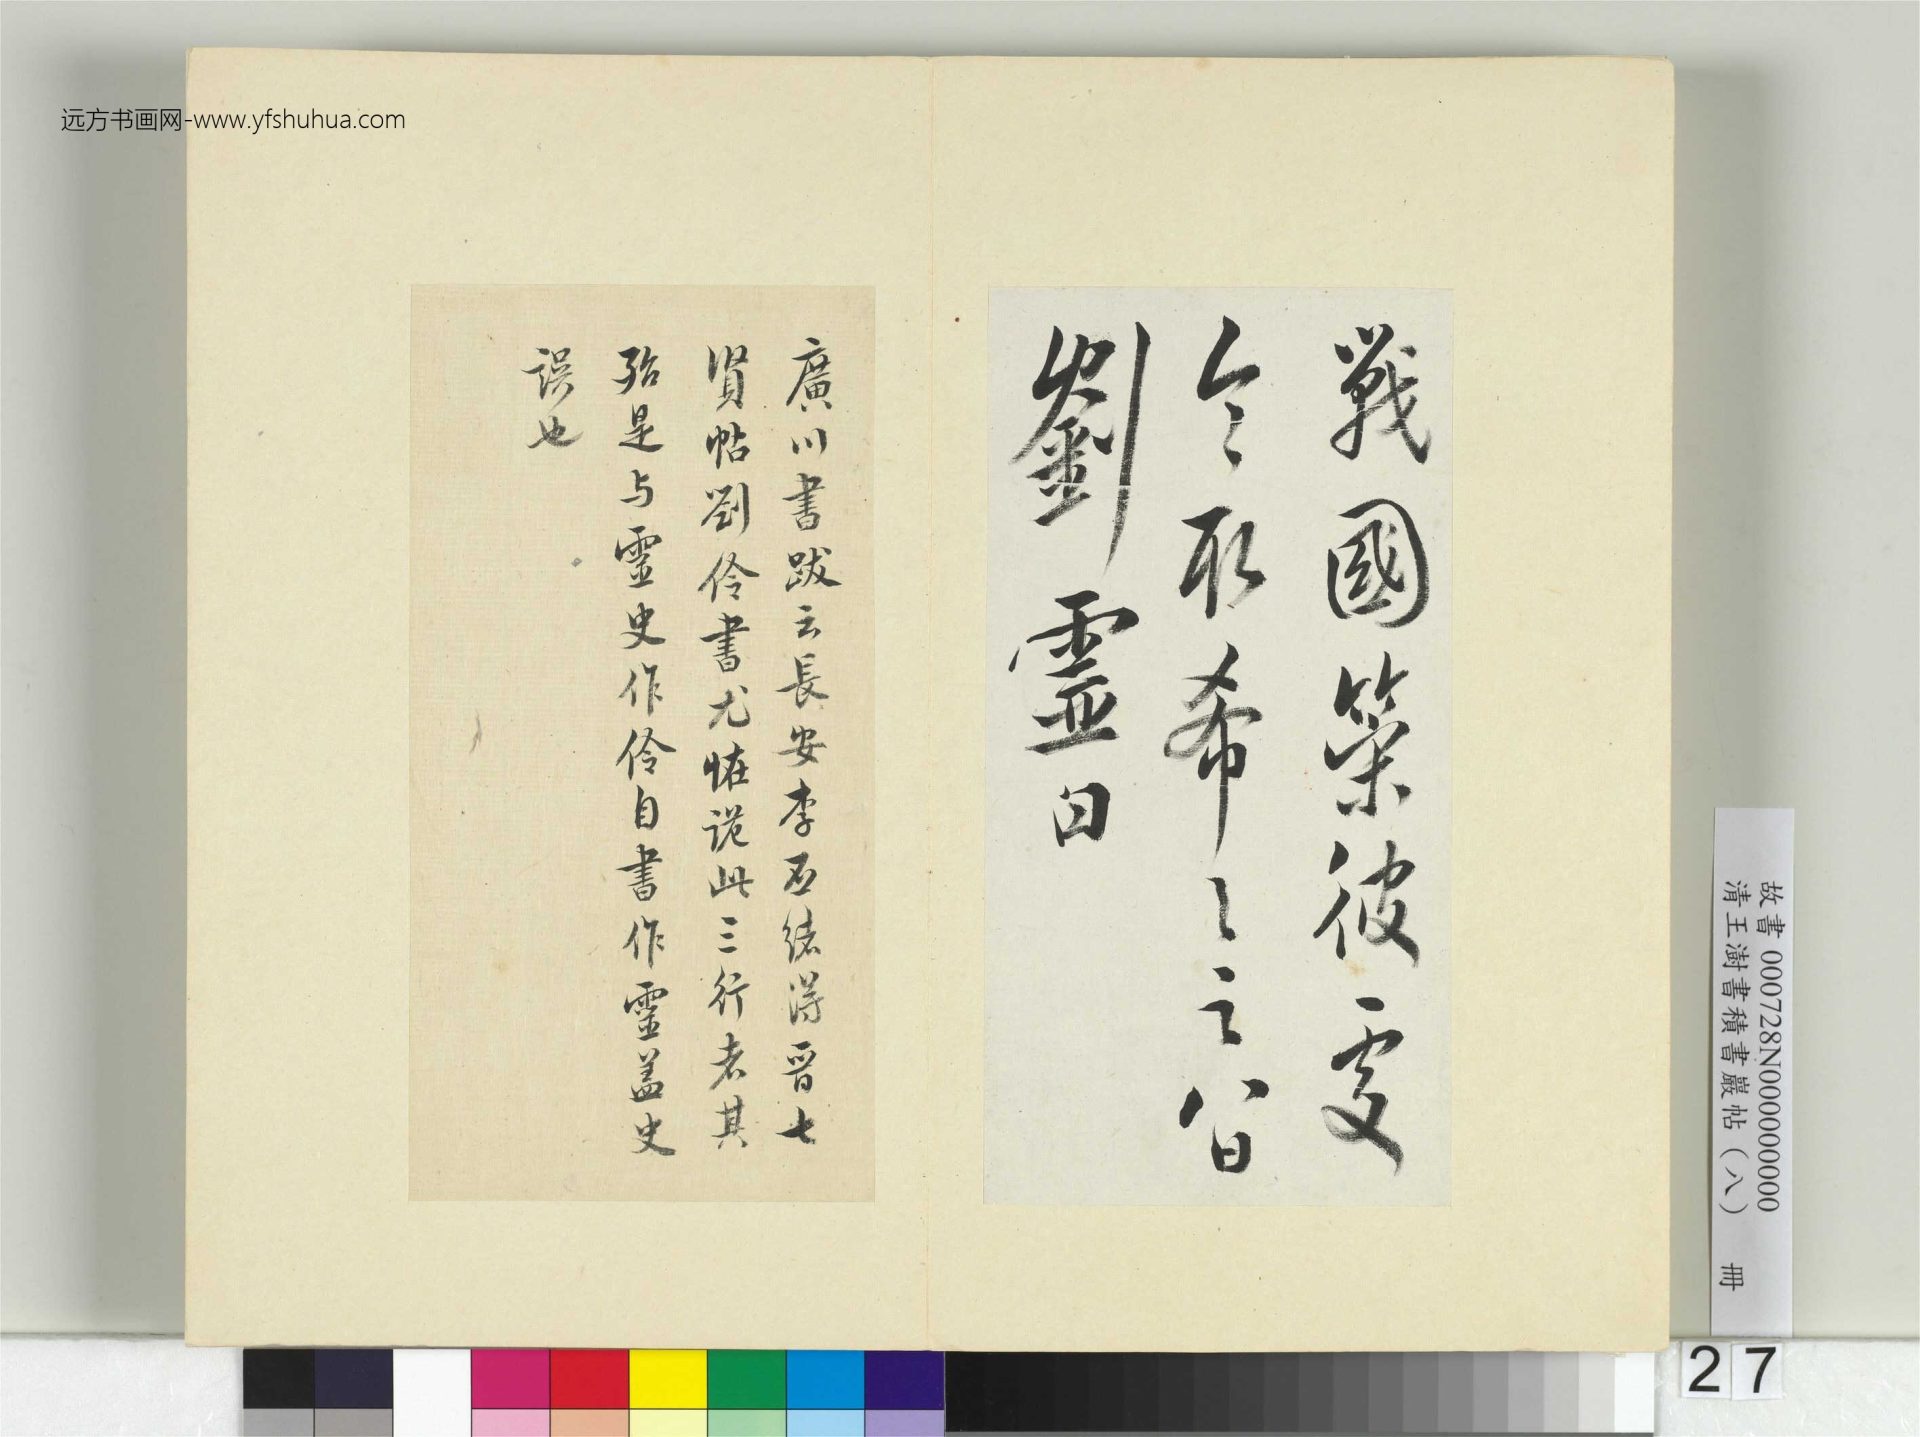 远方书画网-www.yfshuhua.com
戰國策彼處
今取希之之留
劉靈白
廣川書跋云長安李丕緒得晉七
賢帖劉伶書尤恠詭此三行者其
殆是與靈史作伶自書作靈蓋史
誤也
故書 000728N000000000
清王澍書積書巖帖(八) 冊
27